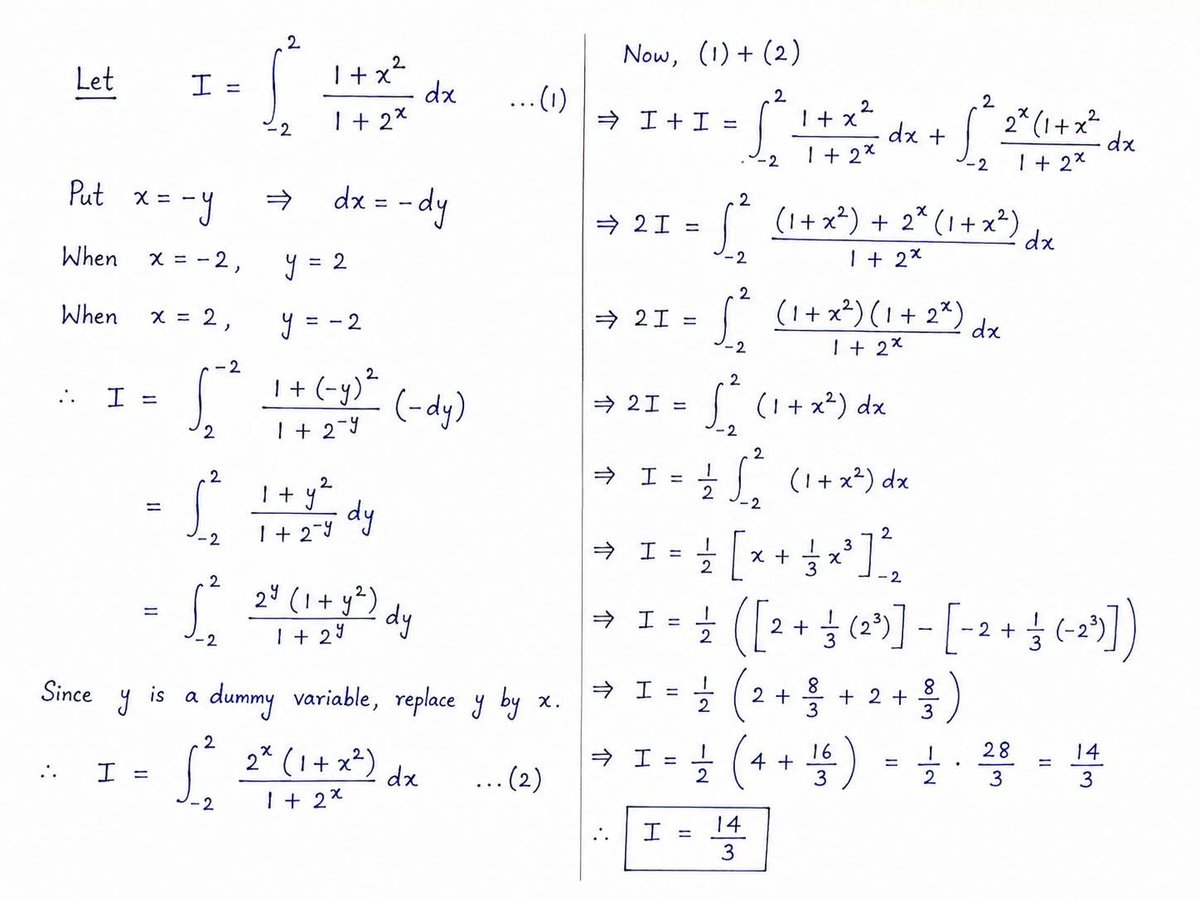 Let I = ∫_{-2}^{2} (1 + x²)/(1 + 2ˣ) dx ...(1)
Put x = -y ⇒ dx = -dy
When x = -2, y = 2
When x = 2, y = -2
∴ I = ∫_{2}^{-2} (1 + (-y)²)/(1 + 2^{-y}) (-dy)
= ∫_{-2}^{2} (1 + y²)/(1 + 2^{-y}) dy
= ∫_{-2}^{2} 2^y (1 + y²)/(1 + 2^y) dy
Since y is a dummy variable, replace y by x.
∴ I = ∫_{-2}^{2} 2ˣ (1 + x²)/(1 + 2ˣ) dx ...(2)
Now, (1) + (2)
⇒ I + I = ∫_{-2}^{2} (1 + x²)/(1 + 2ˣ) dx + ∫_{-2}^{2} 2ˣ(1 + x²/(1 + 2ˣ) dx
⇒ 2I = ∫_{-2}^{2} ((1 + x²) + 2ˣ (1 + x²))/(1 + 2ˣ) dx
⇒ 2I = ∫_{-2}^{2} (1 + x²)(1 + 2ˣ)/(1 + 2ˣ) dx
⇒ 2I = ∫_{-2}^{2} (1 + x²) dx
⇒ I = 1/2 ∫_{-2}^{2} (1 + x²) dx
⇒ I = 1/2 [x + 1/3 x³]_{-2}^{2}
⇒ I = 1/2 ([2 + 1/3 (2³)] - [-2 + 1/3 (-2³)])
⇒ I = 1/2 (2 + 8/3 + 2 + 8/3)
⇒ I = 1/2 (4 + 16/3) = 1/2 · 28/3 = 14/3
∴ I = 14/3